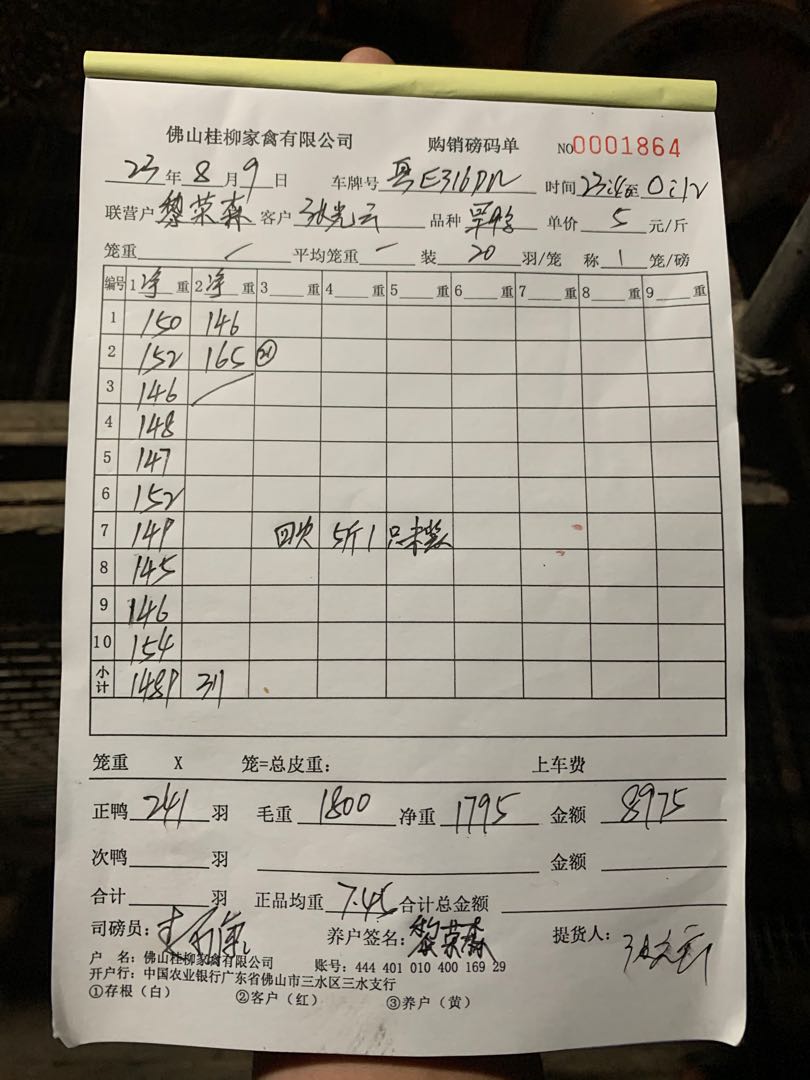 佛山桂柳家禽有限公司 购销磅码单 NO0001864
23年8月9日 车牌号 粤E316DN 时间 23:4至0:12
联营户 黎荣森 客户 张光云 品种 单价 5 元/斤
笼重 / 平均笼重 一 装 20 羽/笼 称 1 笼/磅
编号 1 净 重 2 净 重 3 重 4 重 5 重 6 重 7 重 8 重 9 重
1 150 146
2 152 165 (21)
3 146 /
4 148
5 147
6 152
7 149 回次 5斤1只未数
8 145
9 146
10 154
小计 1489 311
笼重 X 笼=总皮重: 上车费
正鸭 241 羽 毛重 1800 净重 1795 金额 8975
次鸭 羽 金额
合计 羽 正品均重 7.45 合计总金额
司磅员: 养户签名: 黎荣森 提货人:
户 名: 佛山桂柳家禽有限公司 账号: 444 401 010 400 169 29
开户行: 中国农业银行广东省佛山市三水区三水支行
①存根(白) ②客户(红) ③养户(黄)